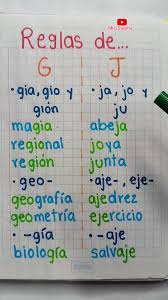 Reglas de...
G J
• gia, gio y • ja, jo y
gión ju
magia abeja
regional joya
región junta
• geo- • aje-, eje-
geografía ajedrez
geometría ejercicio
• -gía • -aje
biología salvaje